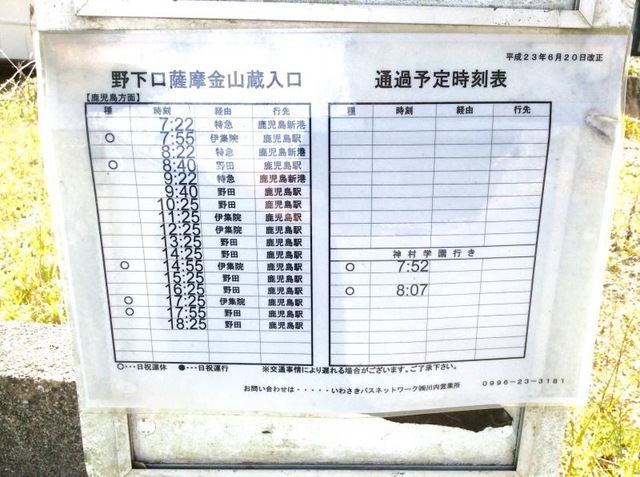 平成23年6月20日改正
野下口薩摩金山蔵入口　通過予定時刻表
【鹿児島方面】
種　時刻　経由　行先
7:22　特急　鹿児島新港
○　7:55　伊集院　鹿児島駅
8:22　特急　鹿児島新港
○　8:40　野田　鹿児島駅
9:22　特急　鹿児島新港
9:40　野田　鹿児島駅
10:25　野田　鹿児島駅
11:25　伊集院　鹿児島駅
12:25　伊集院　鹿児島駅
13:25　野田　鹿児島駅
14:25　野田　鹿児島駅
○　14:55　伊集院　鹿児島駅
15:25　野田　鹿児島駅
16:25　野田　鹿児島駅
○　17:25　伊集院　鹿児島駅
○　17:55　野田　鹿児島駅
18:25　野田　鹿児島駅
種　時刻　経由　行先
神村学園行き
○　7:52
○　8:07
○・・・日祝運休　●・・・日祝運行　※交通事情により遅れる場合がございます。ご了承下さい。
お問い合わせは・・・・・いわさきバスネットワーク㈱川内営業所　0996-23-3181